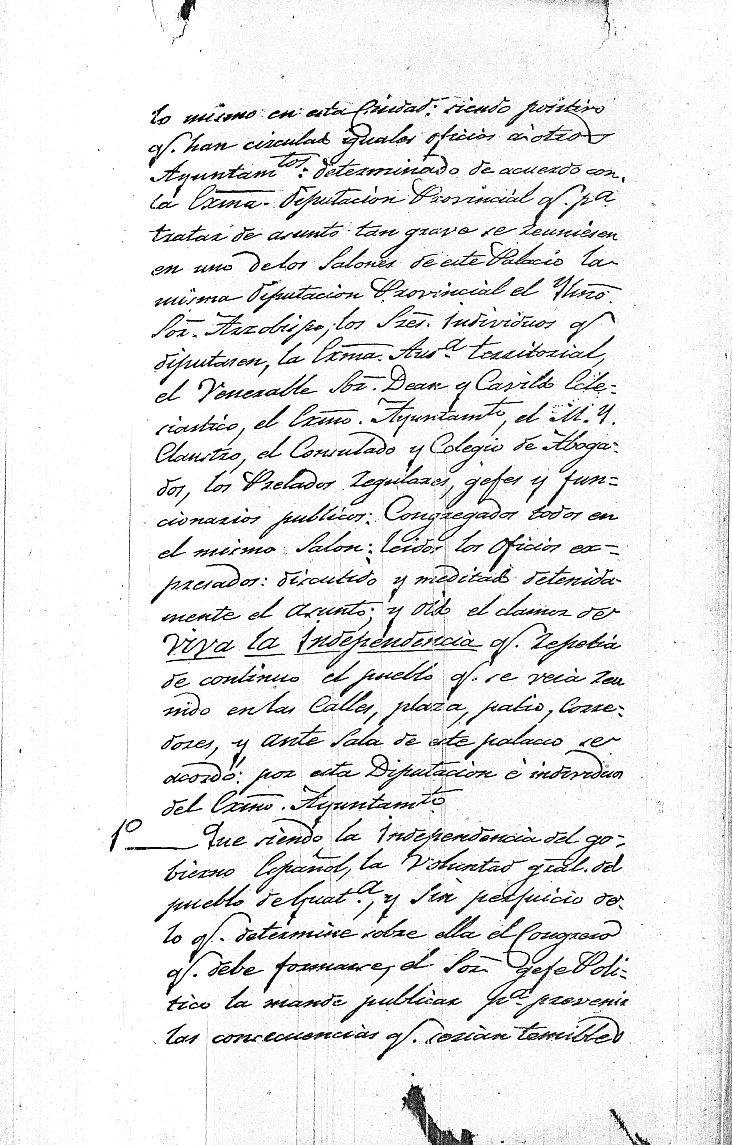 lo mismo en esta Ciudad: siendo positivo
q. han circulad iguales oficios a otros
Ayuntam.tos: determinado de acuerdo con
la Exma. Diputacion Provincial q. p.a
tratar de asunto tan grave se reuniesen
en uno de los Salones de este Palacio la
misma Diputacion Provincial el Yllmo.
Sor. Arzobispo, los Sres. Individuos q
diputasen, la Exma. Aud.a territorial,
el Venerable Sor. Dean y Cavildo Ecle=
ciastico, el Exmo. Ayuntamto, el M. Y.
Claustro, el Consulado y Colegio de Aboga=
dos, los Prelados regulares, gefes y fun=
cionarios publicos: Congregados todos en
el mismo Salon: leidos los oficios ex=
presados: discutido y meditado detenida
mente el asunto; y oido el clamor de
Viva la Independencia q. repetia
de continuo el pueblo q. se veia reu
nido en las Calles, plaza, patio, Corre=
dores, y ante Sala de este palacio se
acordó: por esta Diputacion é individuos
del Exmo. Ayuntamto
1o Que siendo la Independencia del go=
bierno Español, la Voluntad gral. del
pueblo de Guat.a, y Sin perjuicio de
lo q. determine sobre ella el Congreso
q. debe formarse, el Sor. gefe Poli=
tico la mande publicar p.a prevenir
las consecuencias q. serian temibles